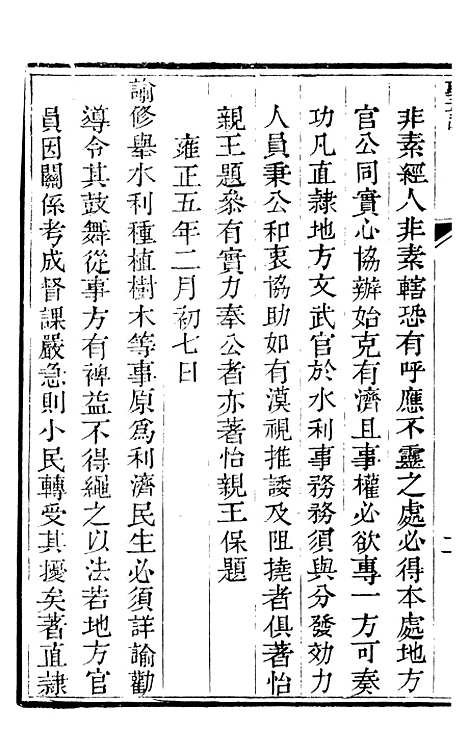 非素經人非素轄恐有呼應不靈之處必得本處地方
官公同實心協辦始克有濟且事權必欲專一方可奏
功凡直隷地方文武官於水利事務務須與分發効力
人員秉公和衷協助如有漠視推諉及阻撓者俱著怡
親王題叅有實力奉公者亦著怡親王保題
雍正五年二月初七日
諭修舉水利種植樹木等事原爲利濟民生必須詳諭勸
導令其鼓舞從事方有裨益不得繩之以法若地方官
員因關係考成督課嚴急則小民轉受其擾矣著直隷